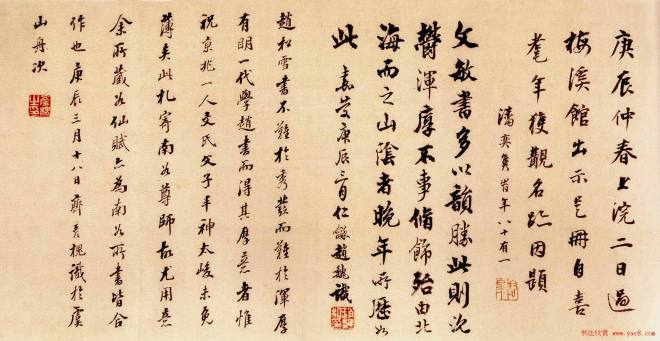 庚辰仲春上浣二日過
梅溪館出示是冊自喜
耄年獲觀名跡因題
潘奕雋時年八十有一
文敏書多以韻勝此則沉
鬱渾厚不事脩飾殆由北
海而之山陰者晚年所歷如
此 嘉慶庚辰三月仁龢趙魏識
趙松雪書不難於秀發而難於渾厚
有明一代學趙書而得其厚意者惟
祝京兆一人文氏父子丰神太峻未免
薄矣此札寄南谷尊師故尤用意
余所藏 仙賦亦為南谷所書皆合
作也庚辰三月十八日齊彥槐識於虞
山舟次
书法欣赏 www.yac8.com